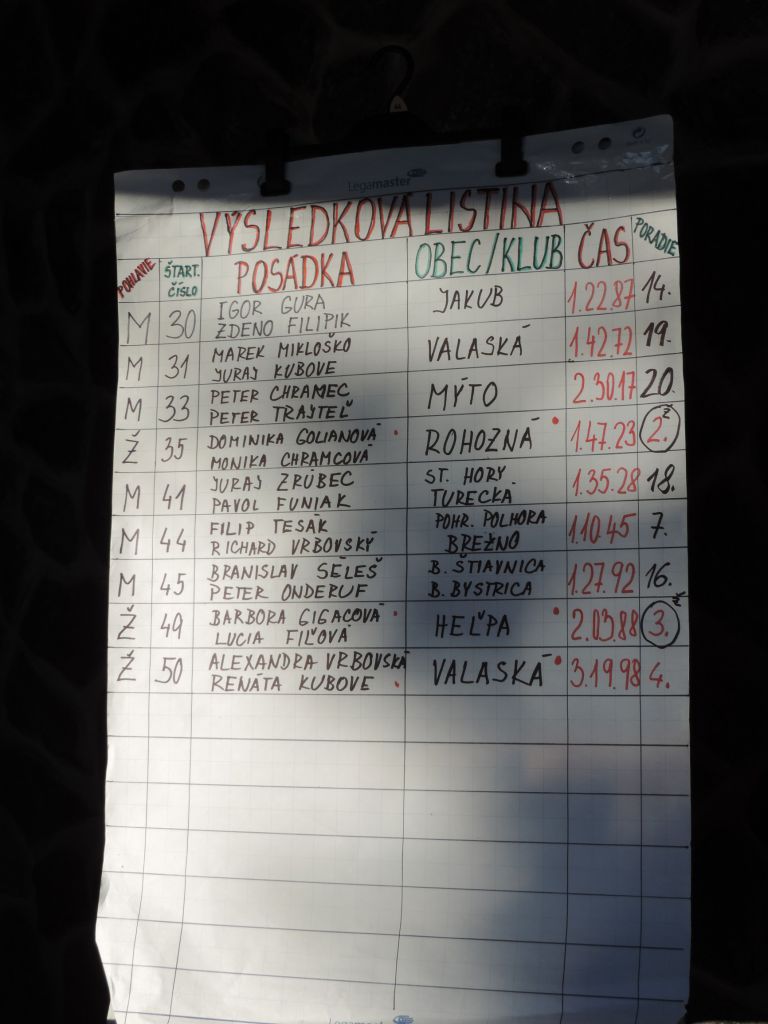 Legamaster
VÝSLEDKOVÁ LISTINA
POHLAVIE ŠTART. ČÍSLO POSÁDKA OBEC/KLUB ČAS PORADIE
M 30 IGOR GURA JAKUB 1.22.87 14.
ZDENO FILIPIK
M 31 MAREK MIKLOŠKO VALASKÁ 1.42.72 19.
JURAJ KUBOVE
M 33 PETER CHRAMEC MÝTO 2.30.17 20.
PETER TRAJTEĽ
Ž 35 DOMINIKA GOLIANOVÁ ROHOZNÁ 1.47.23 2. Ž
MONIKA CHRAMCOVÁ
M 41 JURAJ ZRÚBEC ST. HORY 1.35.28 18.
PAVOL FUNIAK TURECKÁ
M 44 FILIP TESÁK POHR. POLHORA 1.10.45 7.
RICHARD VRBOVSKÝ BREZNO
M 45 BRANISLAV SÉLEŠ B. ŠTIAVNICA 1.27.92 16.
PETER ONDERUF B. BYSTRICA
Ž 49 BARBORA GIGACOVÁ HEĽPA 2.03.88 3.
LUCIA FIĽOVÁ
Ž 50 ALEXANDRA VRBOVSKÁ VALASKÁ 3.19.98 4.
RENÁTA KUBOVE
Legamaster